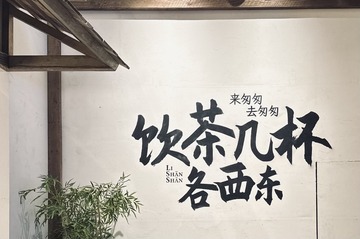 来匆匆
去匆匆
饮茶几杯
LI
SHĀN
SHĀN
各西东